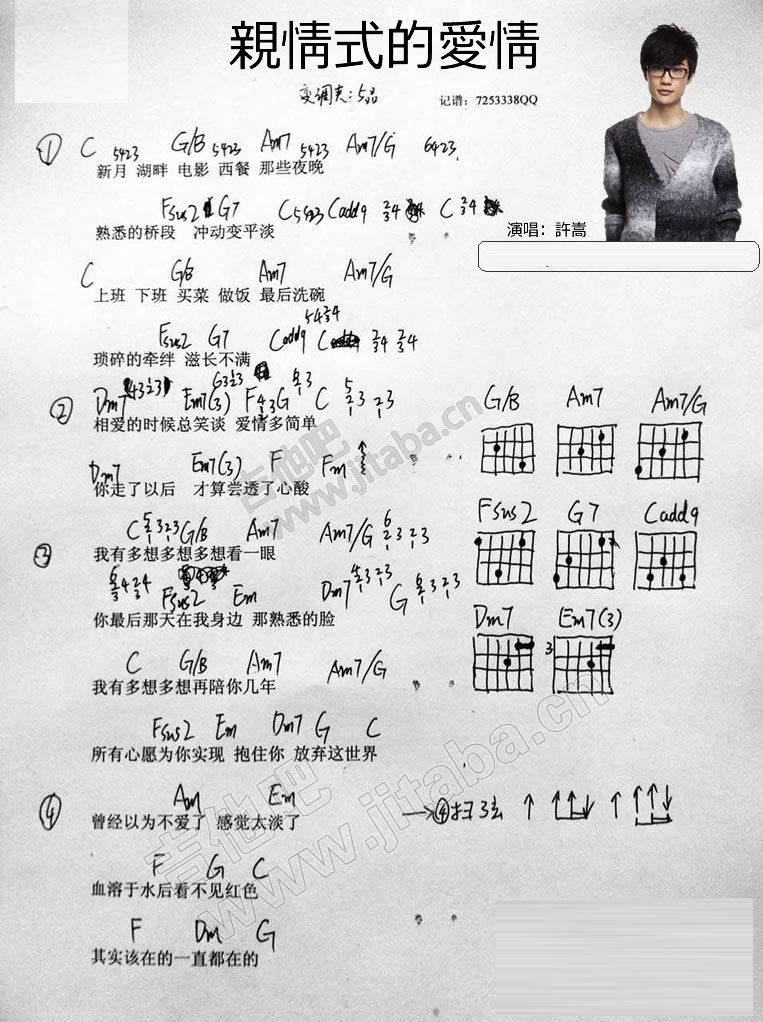 親情式的愛情
变调夹:5品
记谱:7253338QQ
① C 5423 G/B 5423 Am7 5423 Am7/G 6423
新月 湖畔 电影 西餐 那些夜晚
Fsus2 G7 C 5423 Cadd9 C
熟悉的桥段 冲动变平淡
演唱:許嵩
C G/B Am7 Am7/G
上班 下班 买菜 做饭 最后洗碗
Fsus2 G7 Cadd9 C
琐碎的牵绊 滋长不满
② Dm7 Em7(3) F G C
相爱的时候总笑谈 爱情多简单
G/B Am7 Am7/G
Dm7 Em7(3) F Fm
你走了以后 才算尝透了心酸
Fsus2 G7 Cadd9
③ C G/B Am7 Am7/G
我有多想多想多想看一眼
Fsus2 Em Dm7 G
你最后那天在我身边 那熟悉的脸
Dm7 Em7(3)
3
C G/B Am7 Am7/G
我有多想多想再陪你几年
Fsus2 Em Dm7 G C
所有心愿为你实现 抱住你 放弃这世界
④ Am Em
曾经以为不爱了 感觉太淡了
→④扫弦 ↑ ↑↑↓ ↑ ↑↑↓
F G C
血溶于水后看不见红色
F Dm G
其实该在的一直都在的
吉他吧
www.jitaba.cn
吉他吧
www.jitaba.cn